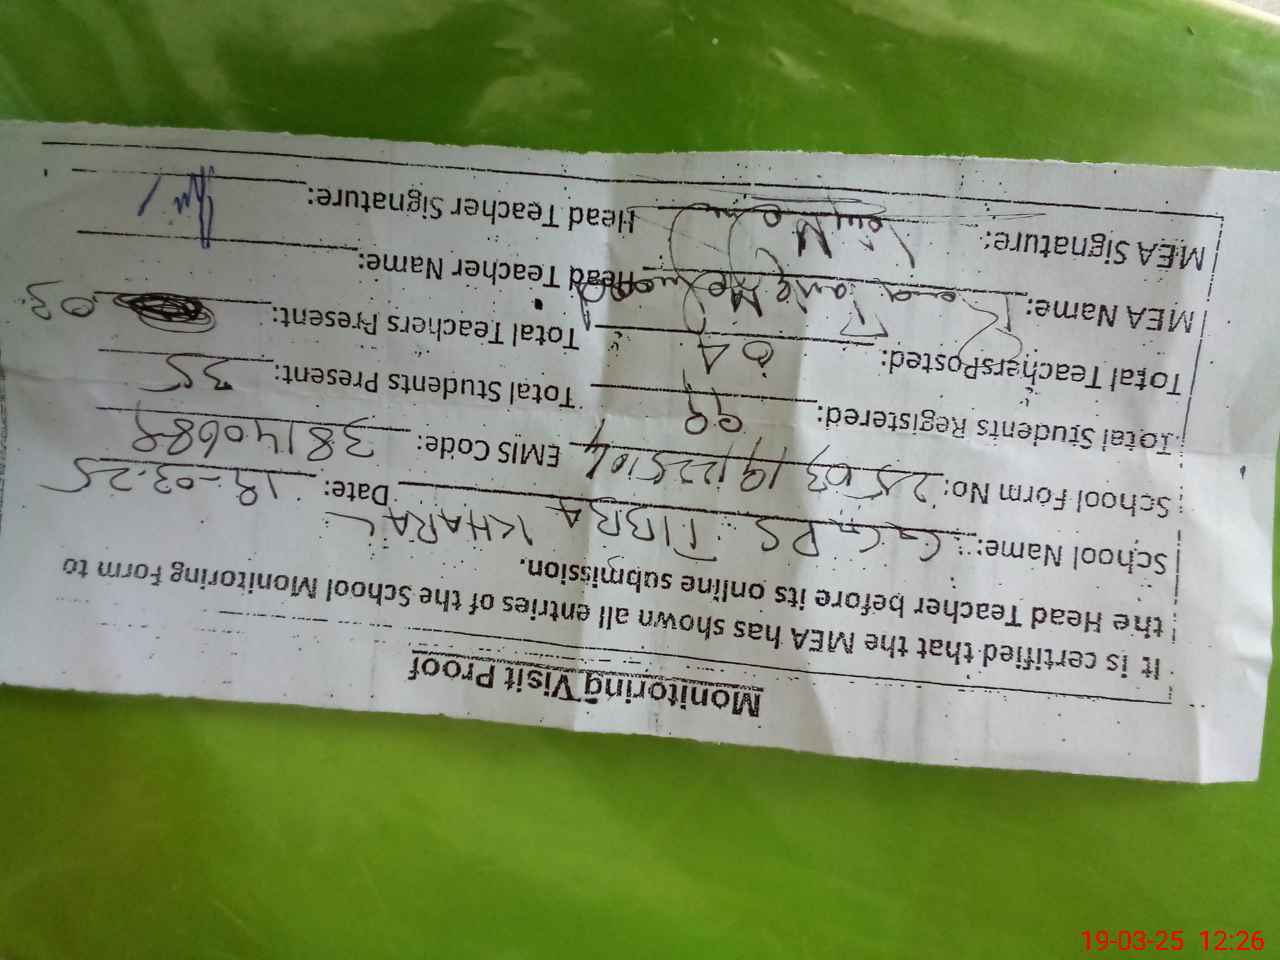 Monitoring Visit Proof
It is certified that the MEA has shown all entries of the School Monitoring Form to
the Head Teacher before its online submission.
School Name: GGPS TIBBA KHARAL Date: 19-03-25
School Form No: EMIS Code:
Total Students Registered: 99 Total Students Present: 35
Total Teachers Posted: 04 Total Teachers Present: 03
MEA Name: Head Teacher Name:
MEA Signature: Head Teacher Signature:
19-03-25 12:26